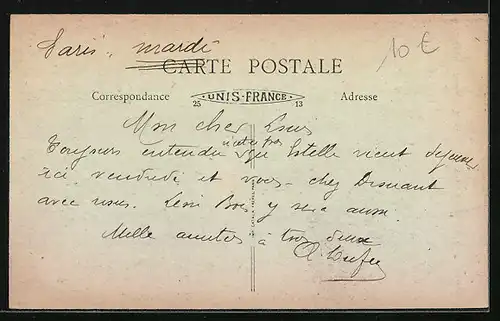 Paris, mardi
10 €
CARTE POSTALE
Correspondance
UNIS-FRANCE
25 13
Adresse
Mon cher Louis
Toujours entendu Estelle vient déjeuner
ici vendredi et vous chez
avec nous. Léon y sera aussi.
Mille amitiés à tous deux